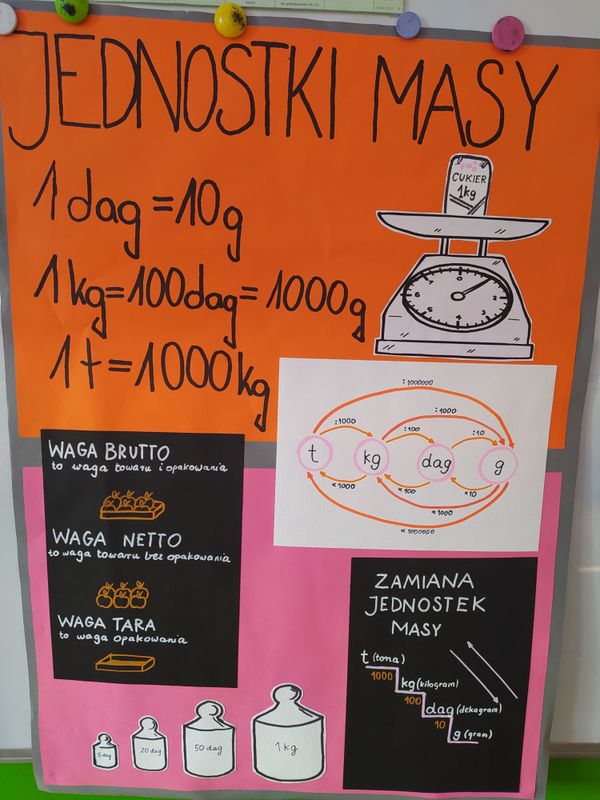 JEDNOSTKI MASY
1 dag = 10g
1 kg = 100dag = 1000g
1t = 1000kg
CUKIER
1kg
0
1
2
3
4
5
6
: 1000000
:1000
:1000
:100
:10
t
kg
dag
g
× 1000
× 100
× 10
× 1000
× 1000000
WAGA BRUTTO
to waga towaru i opakowania
WAGA NETTO
to waga towaru bez opakowania
WAGA TARA
to waga opakowania
ZAMIANA
JEDNOSTEK
MASY
t (tona)
1000
kg (kilogram)
100
dag (dekagram)
10
g (gram)
5 dag
20 dag
50 dag
1 kg